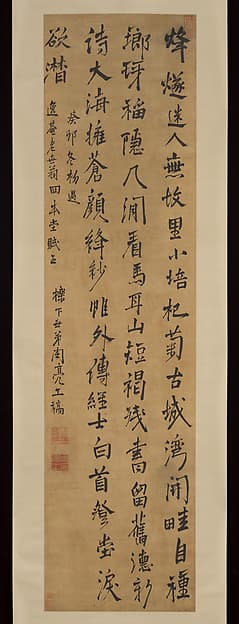 烽燧迷人無故里小培杞菊古城灣開畦自種
瑯琊稻隱几閒看馬耳山短褐殘書留舊德新
詩大海擁蒼顏絳紗帷外傳經士白首登堂淚
欲潸
癸卯冬初過
逸菴老年翁堂賦正
櫟下年弟周亮工稿